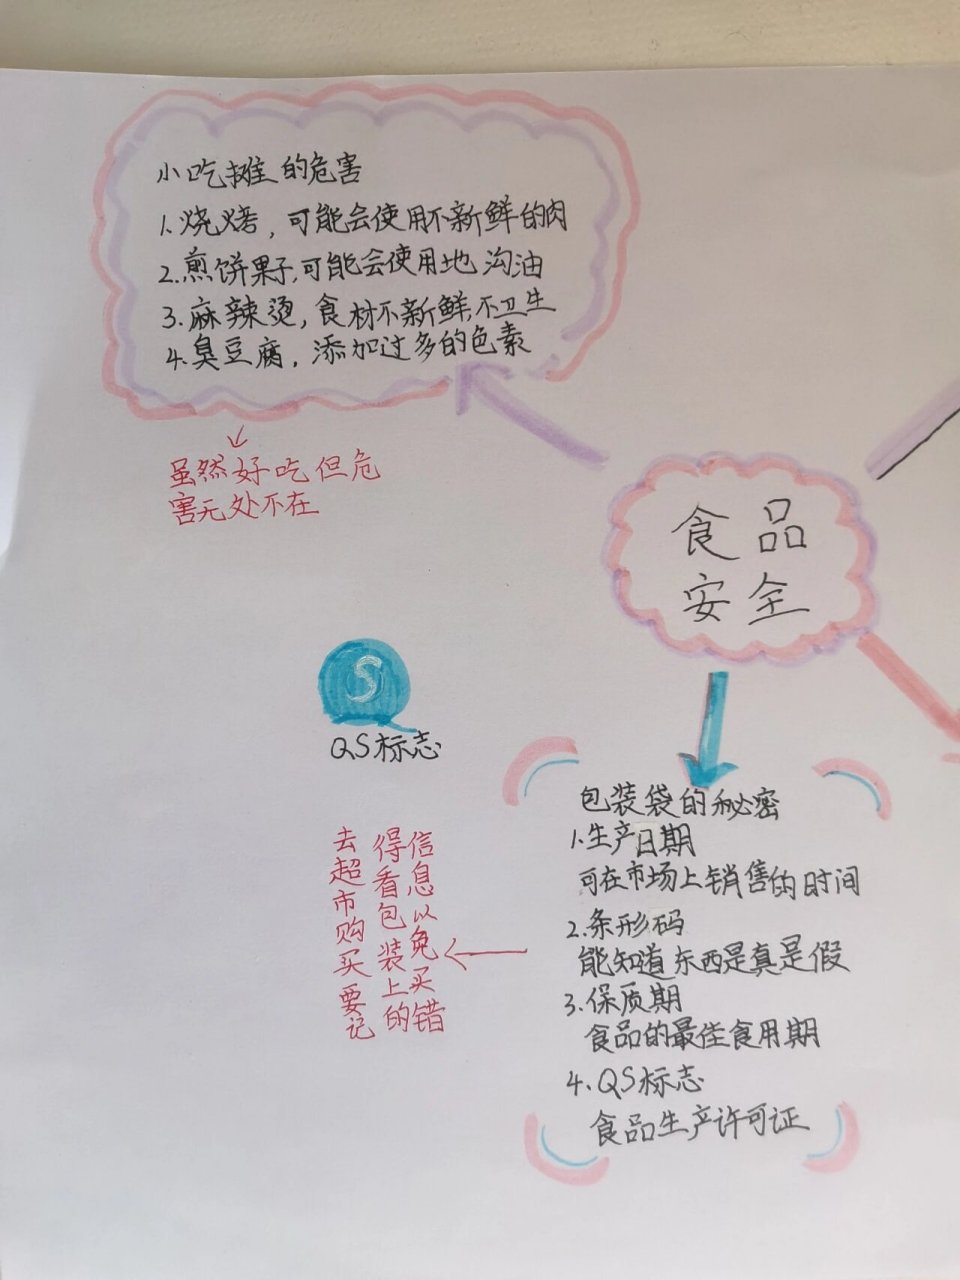 小吃摊的危害
1.烧烤，可能会使用不新鲜的肉
2.煎饼果子,可能会使用地沟油
3.麻辣烫，食材不新鲜,不卫生
4.臭豆腐，添加过多的色素
虽然好吃但危
害无处不在
食品
安全
S
QS标志
包装袋的秘密
1.生产日期
可在市场上销售的时间
2.条形码
能知道东西是真是假
3.保质期
食品的最佳食用期
4.QS标志
食品生产许可证
去超市购买要记
得看包装上的
信息以免买错